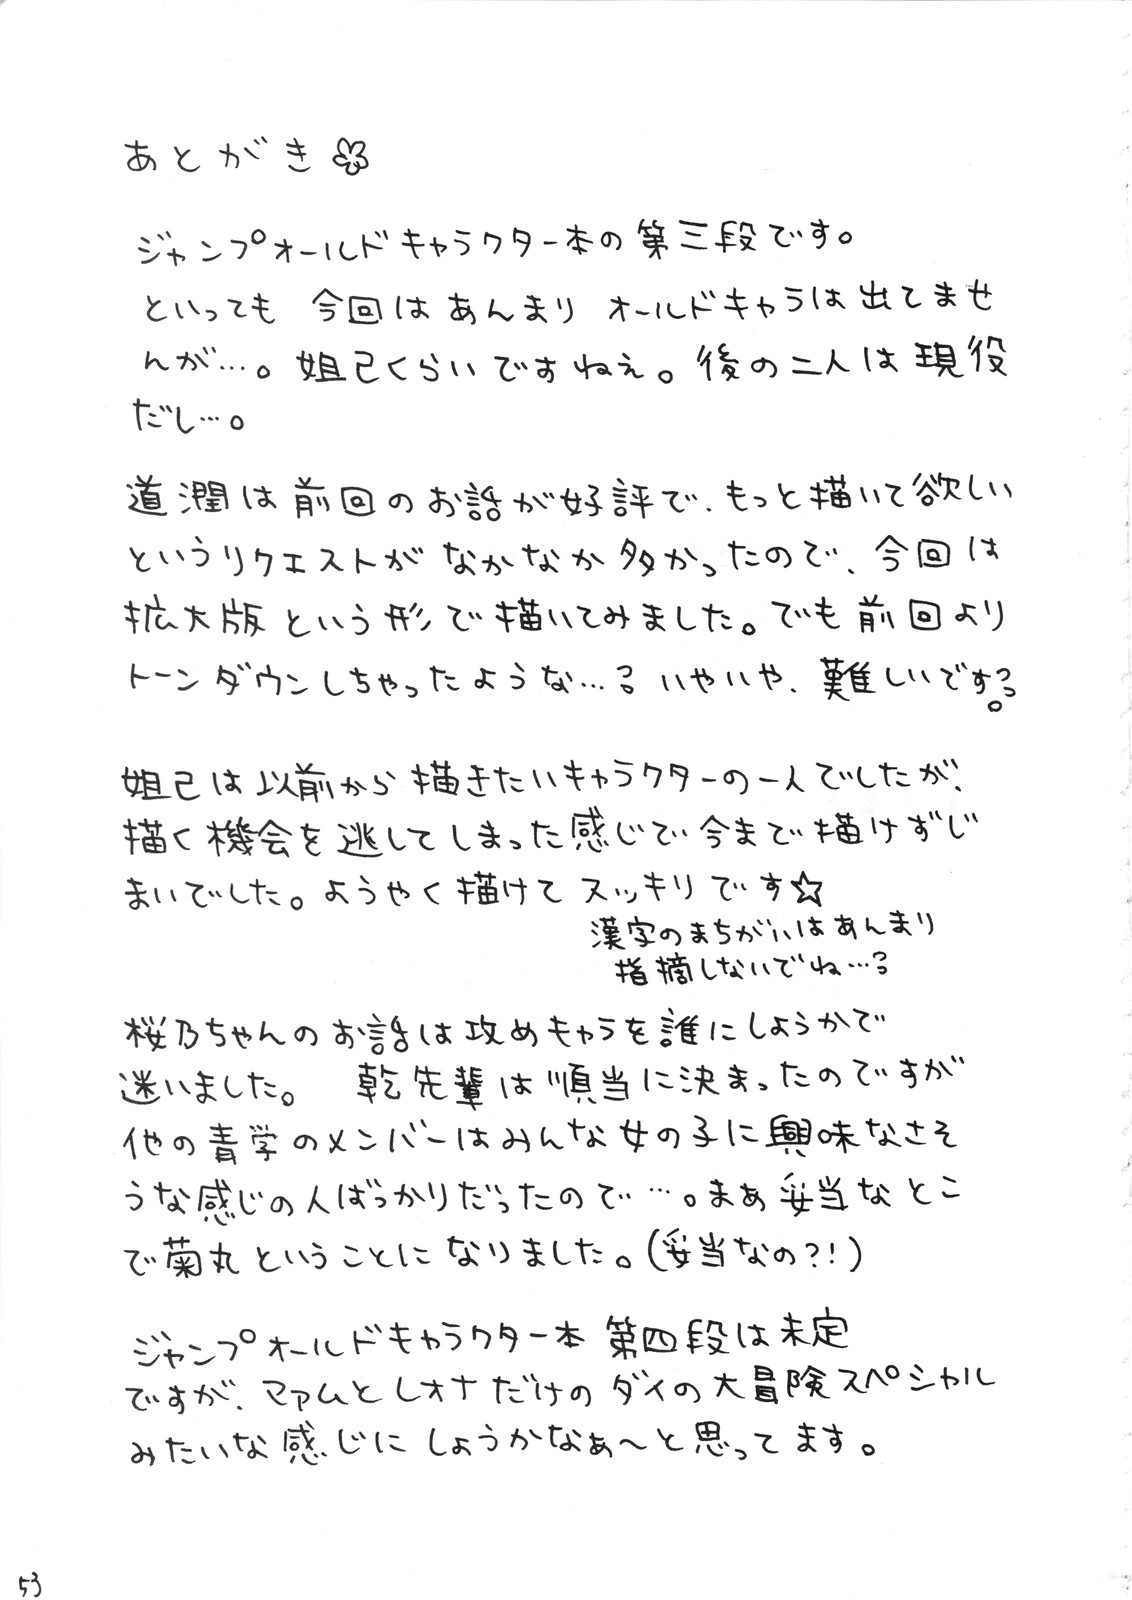 あとがき
ジャンプオールドキャラクター本の第三段です。
といっても 今回はあんまり オールドキャラは出てませ
んが…。妲己くらいですねぇ。後の二人は現役
だし…。
道潤は前回のお話が好評で、もっと描いて欲しい
というリクエストがなかなか多かったので、今回は
拡大版という形で描いてみました。でも前回より
トーンダウンしちゃったような…? いやいや、難しいです?。
妲己は以前から描きたいキャラクターの一人でしたが、
描く機会を逃してしまった感じで今まで描けずじ
まいでした。ようやく描けてスッキリです☆
漢字のまちがいはあんまり
指摘しないでね…?
桜乃ちゃんのお話は攻めキャラを誰にしようかで
迷いました。 乾先輩は順当に決まったのですが
他の青学のメンバーはみんな女の子に興味なさそ
うな感じの人ばっかりだったので…。まあ妥当なとこ
で菊丸ということになりました。(妥当なの?!)
ジャンプオールドキャラクター本 第四段は未定
ですが、マァムとレオナだけのダイの大冒険スペシャル
みたいな感じにしようかなぁ〜と思ってます。
53